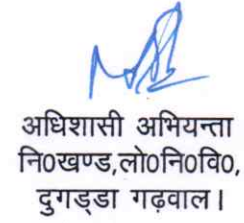 अधिशासी अभियन्ता
नि0खण्ड,लो0नि0वि0,
दुगड्डा गढ़वाल।